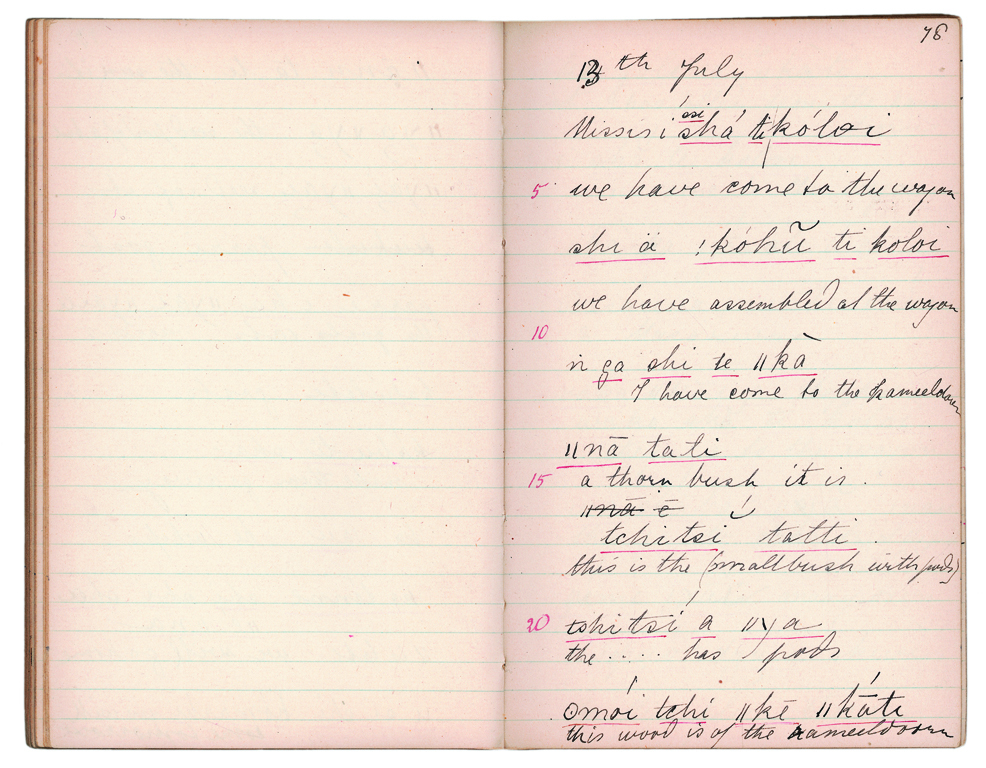 78
13th July
Missis i shá ti kóloi
ssi
5 we have come to the wagon
shi ä !kóhũ ti koloi
we have assembled at the wagon
10
n ga shi te ǁkā
I have come to the kameeldoorn
ǁnā tati
15 a thorn bush it is.
ǁnā ē
tchi tsi tatti.
this is the (small bush with pods)
20 tshi tsí a ǁya
the .... has pods
ʘmói tchi ǁkē ǁkáti
this wood is of the kameeldoorn